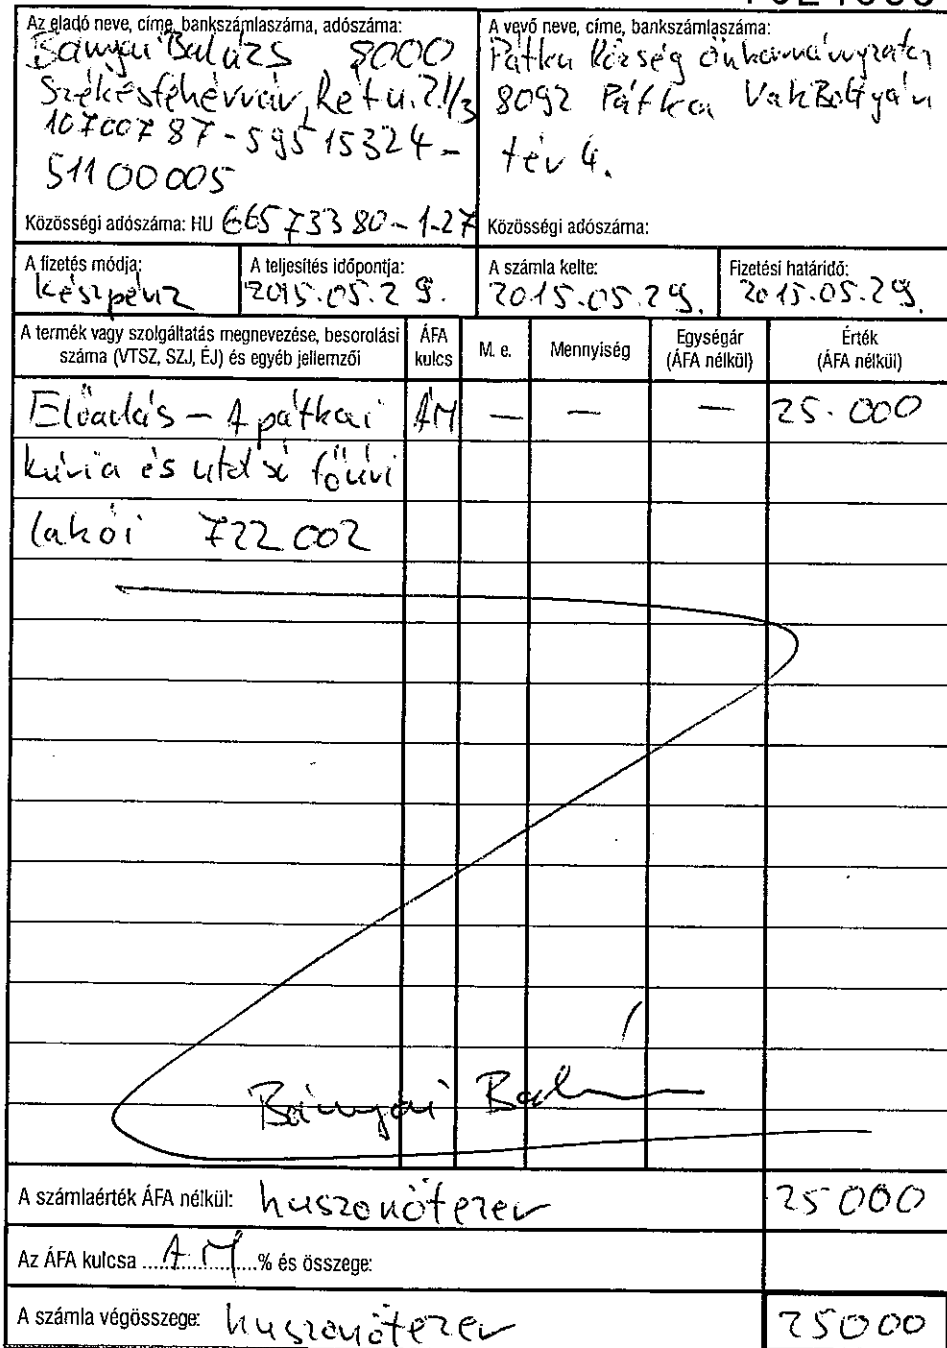 Az eladó neve, címe, bankszámlaszáma, adószáma:
Bányai Balázs 8000
Székesfehérvár, Rét u. 21/3
10700787-59515324-
51100005
Közösségi adószáma: HU 66573380-1-27
A vevő neve, címe, bankszámlaszáma:
Pátka Község Önkormányzata
8092 Pátka Vak Bottyán
tér 4.
Közösségi adószáma:
A fizetés módja:
készpénz
A teljesítés időpontja:
2015.05.29.
A számla kelte:
2015.05.29.
Fizetési határidő:
2015.05.29.
A termék vagy szolgáltatás megnevezése, besorolási száma (VTSZ, SZJ, ÉJ) és egyéb jellemzői
ÁFA kulcs
M. e.
Mennyiség
Egységár (ÁFA nélkül)
Érték (ÁFA nélkül)
Előadás – A pátkai AM — — — 25.000
kúria és utolsó főúri
lakói 722002
Bányai
A számlaérték ÁFA nélkül: huszonötezer 25000
Az ÁFA kulcsa A.M. % és összege:
A számla végösszege: huszonötezer 25000